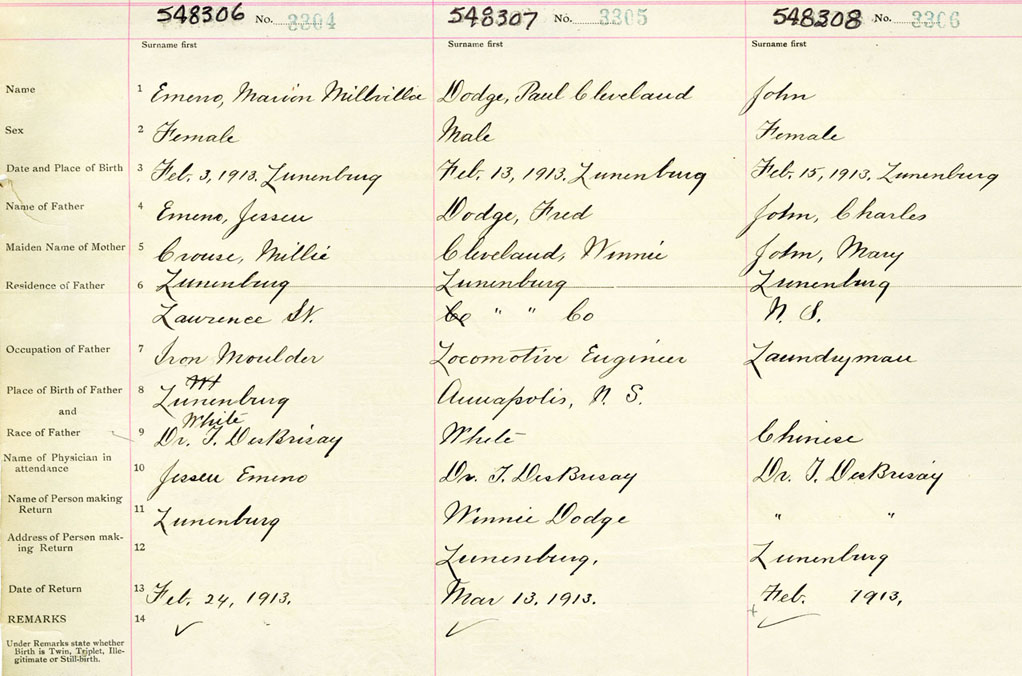 548306 No. 3304 548307 No. 3305 548308 No. 3306
Surname first Surname first Surname first
Name 1 Emeno, Marion Millvilla Dodge, Paul Cleveland John
Sex 2 Female Male Female
Date and Place of Birth 3 Feb. 3, 1913. Lunenburg Feb. 13, 1913. Lunenburg Feb. 15, 1913. Lunenburg
Name of Father 4 Emeno, Jessen Dodge, Fred John, Charles
Maiden Name of Mother 5 Crouse, Millie Cleveland, Winnie John, Mary
Residence of Father 6 Lunenburg Lunenburg Lunenburg
Lawrence St. Co " " Co N. S.
Occupation of Father 7 Iron Moulder Locomotive Engineer Laundryman
Place of Birth of Father 8 Lunenburg Annapolis, N. S.
and White
Race of Father 9 Dr. T. DesBrisay White Chinese
Name of Physician in
attendance 10 Jessen Emeno Dr. T. DesBrisay Dr. T. DesBrisay
Name of Person making
Return 11 Lunenburg Winnie Dodge " "
Address of Person mak-
ing Return 12 Lunenburg, Lunenburg
Date of Return 13 Feb. 24, 1913. Mar 13. 1913. Feb. 1913,
REMARKS 14
Under Remarks state whether
Birth is Twin, Triplet, Ille-
gitimate or Still-birth.